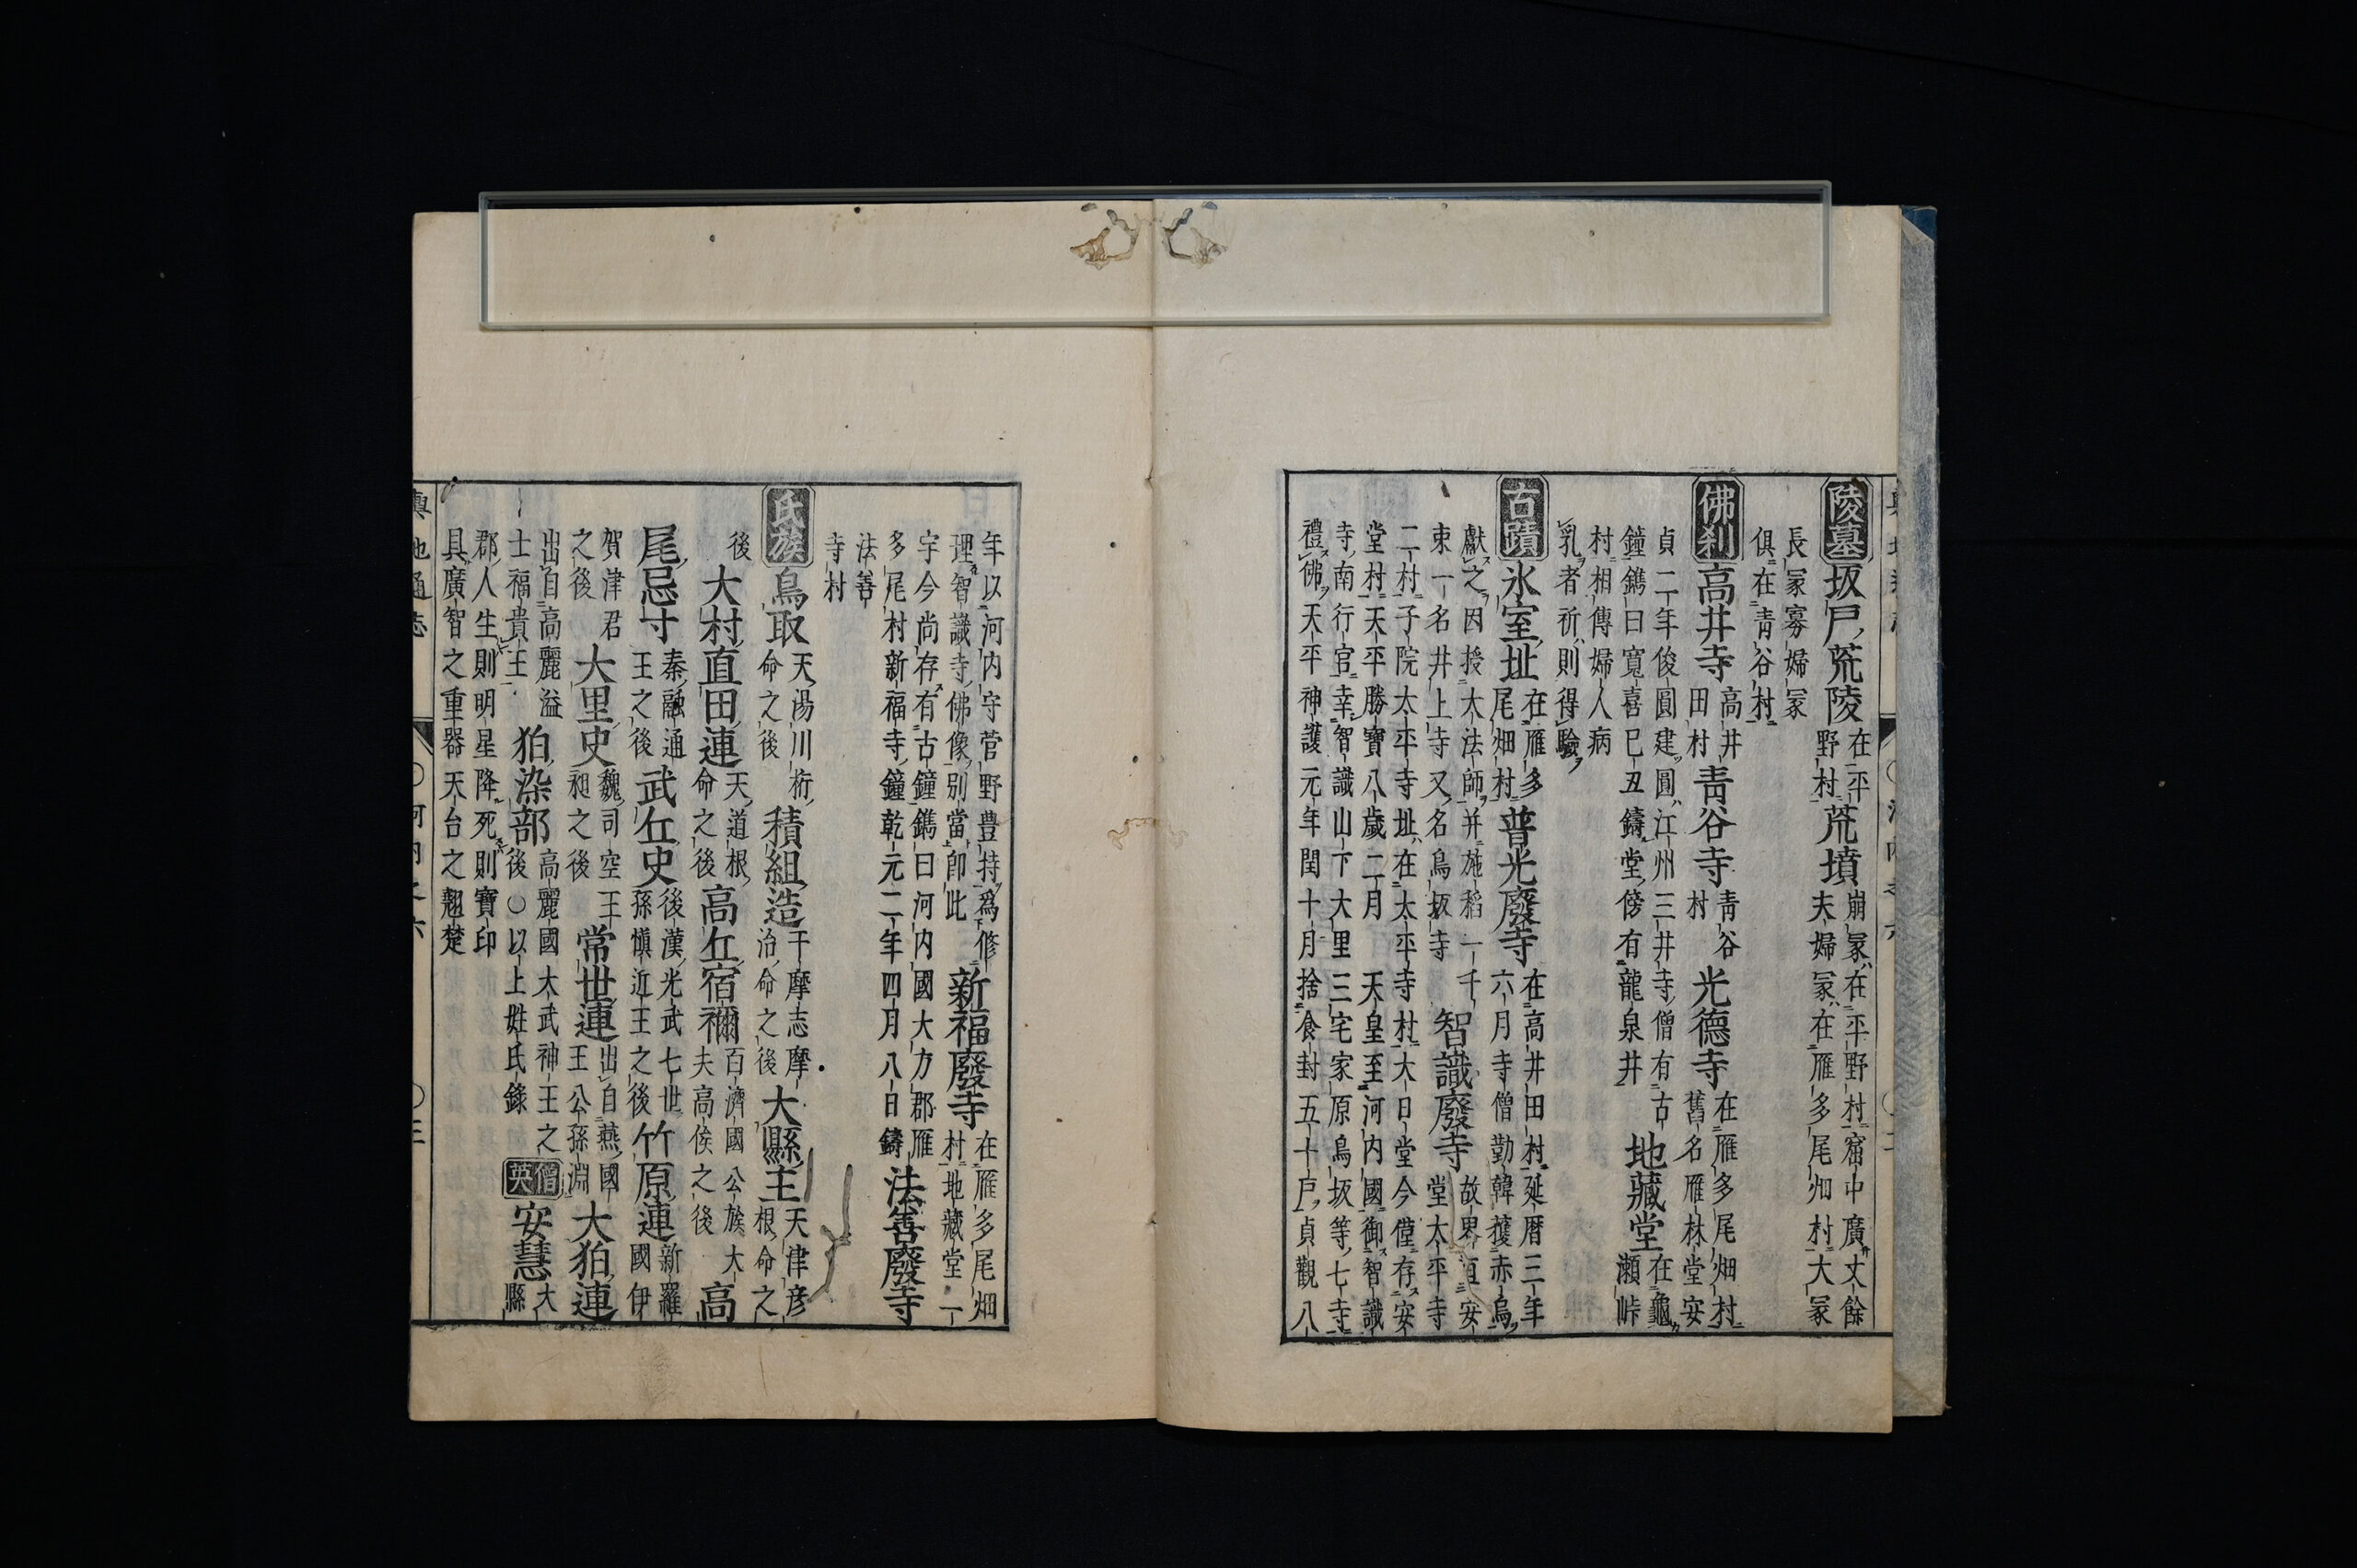 陵墓 坂戸荒陵 在平野村 荒墳 崩冢在平野村窟中廣丈餘夫婦冢在雁多尾畑村大冢
長冢寡婦冢俱在青谷村
佛刹 高井寺 高井田村 青谷寺 青谷村 光德寺 在雁多尾畑村舊名雁林堂安
貞二年俊圓建圓江州三井寺僧有古鐘鐫曰寬喜己丑鑄堂傍有龍泉井 地藏堂 在龜瀬峠
村相傳婦人病乳者祈則得驗
古蹟 氷室址 在雁多尾畑村 普光廢寺 在高井田村延暦三年六月寺僧勤韓獲赤烏
獻之因授大法師并施稻一千束一名井上寺又名鳥坂寺 智識廢寺 故界
二村子院太平寺址在太平寺村大日堂今僅存安堂村天平勝寶八歲二月天皇至河内國御智識
寺南行宮幸智識山下大里三宅家原鳥坂等七寺禮佛天平神護元年閏十月捨食封五十戸貞觀八
年以河内守菅野豊持爲修理智識寺佛像別當即此 新福廢寺 在雁多尾畑村地藏堂一
宇今尚存有古鐘鐫曰河内國大方郡雁多尾村新福寺鐘乾元二年四月八日鑄 法善廢寺
法善寺村
氏族 鳥取 天湯川桁命之後 積組造 于摩志摩治命之後 大縣主 天津彦根命之
後 大村直田連 天道根命之後 高丘宿禰 百濟國公族大夫高侯之後 高
尾忌寸 秦融通王之後 武丘史 後漢光武七世孫愼近王之後 竹原連 新羅國伊
賀津君之後 大里史 魏司空王昶之後 常世連 出自燕國王公孫淵 大狛連
出自高麗溢士福貴王 狛染部 高麗國大武神王之後○以上姓氏錄 僧英 安慧 大縣
郡人生則明星降死則寶印具廣智之重器天台之翹楚